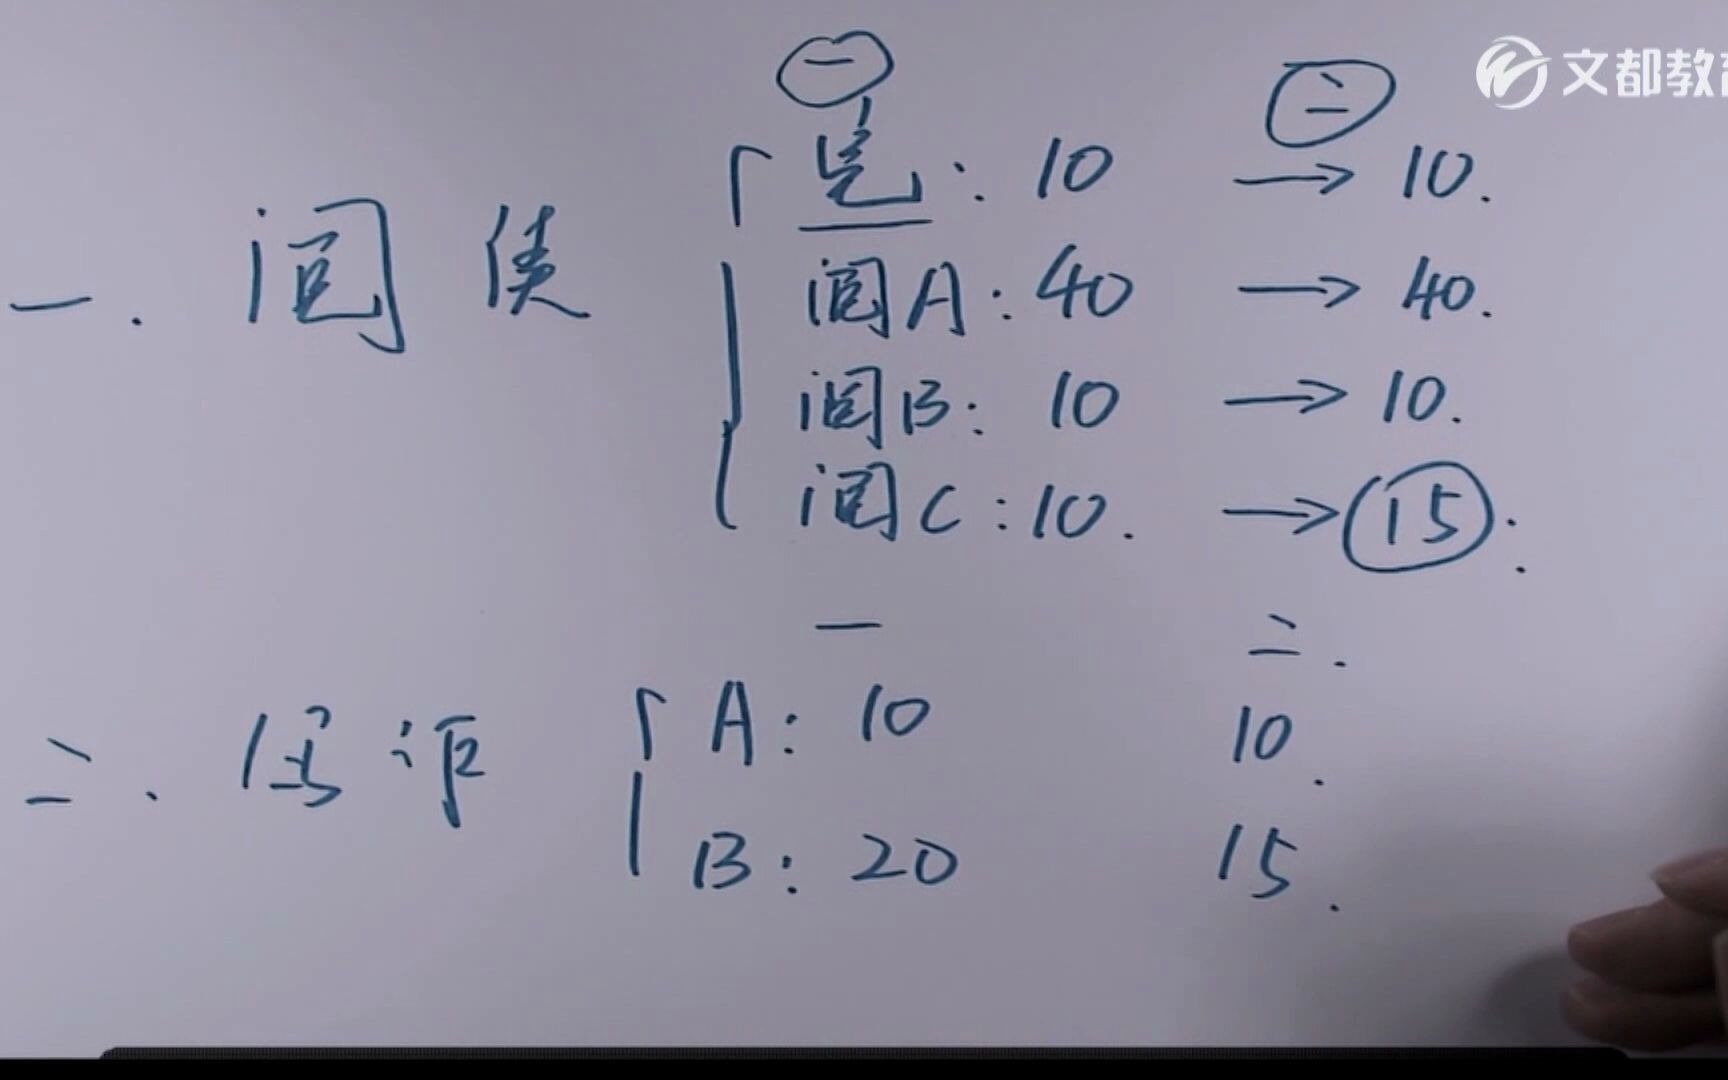 文都教育
一 二
完: 10 → 10.
一. 阅读
阅A: 40 → 40.
阅B: 10 → 10.
阅C: 10. → 15.
一 二.
A: 10 10.
二. 写作
B: 20 15.